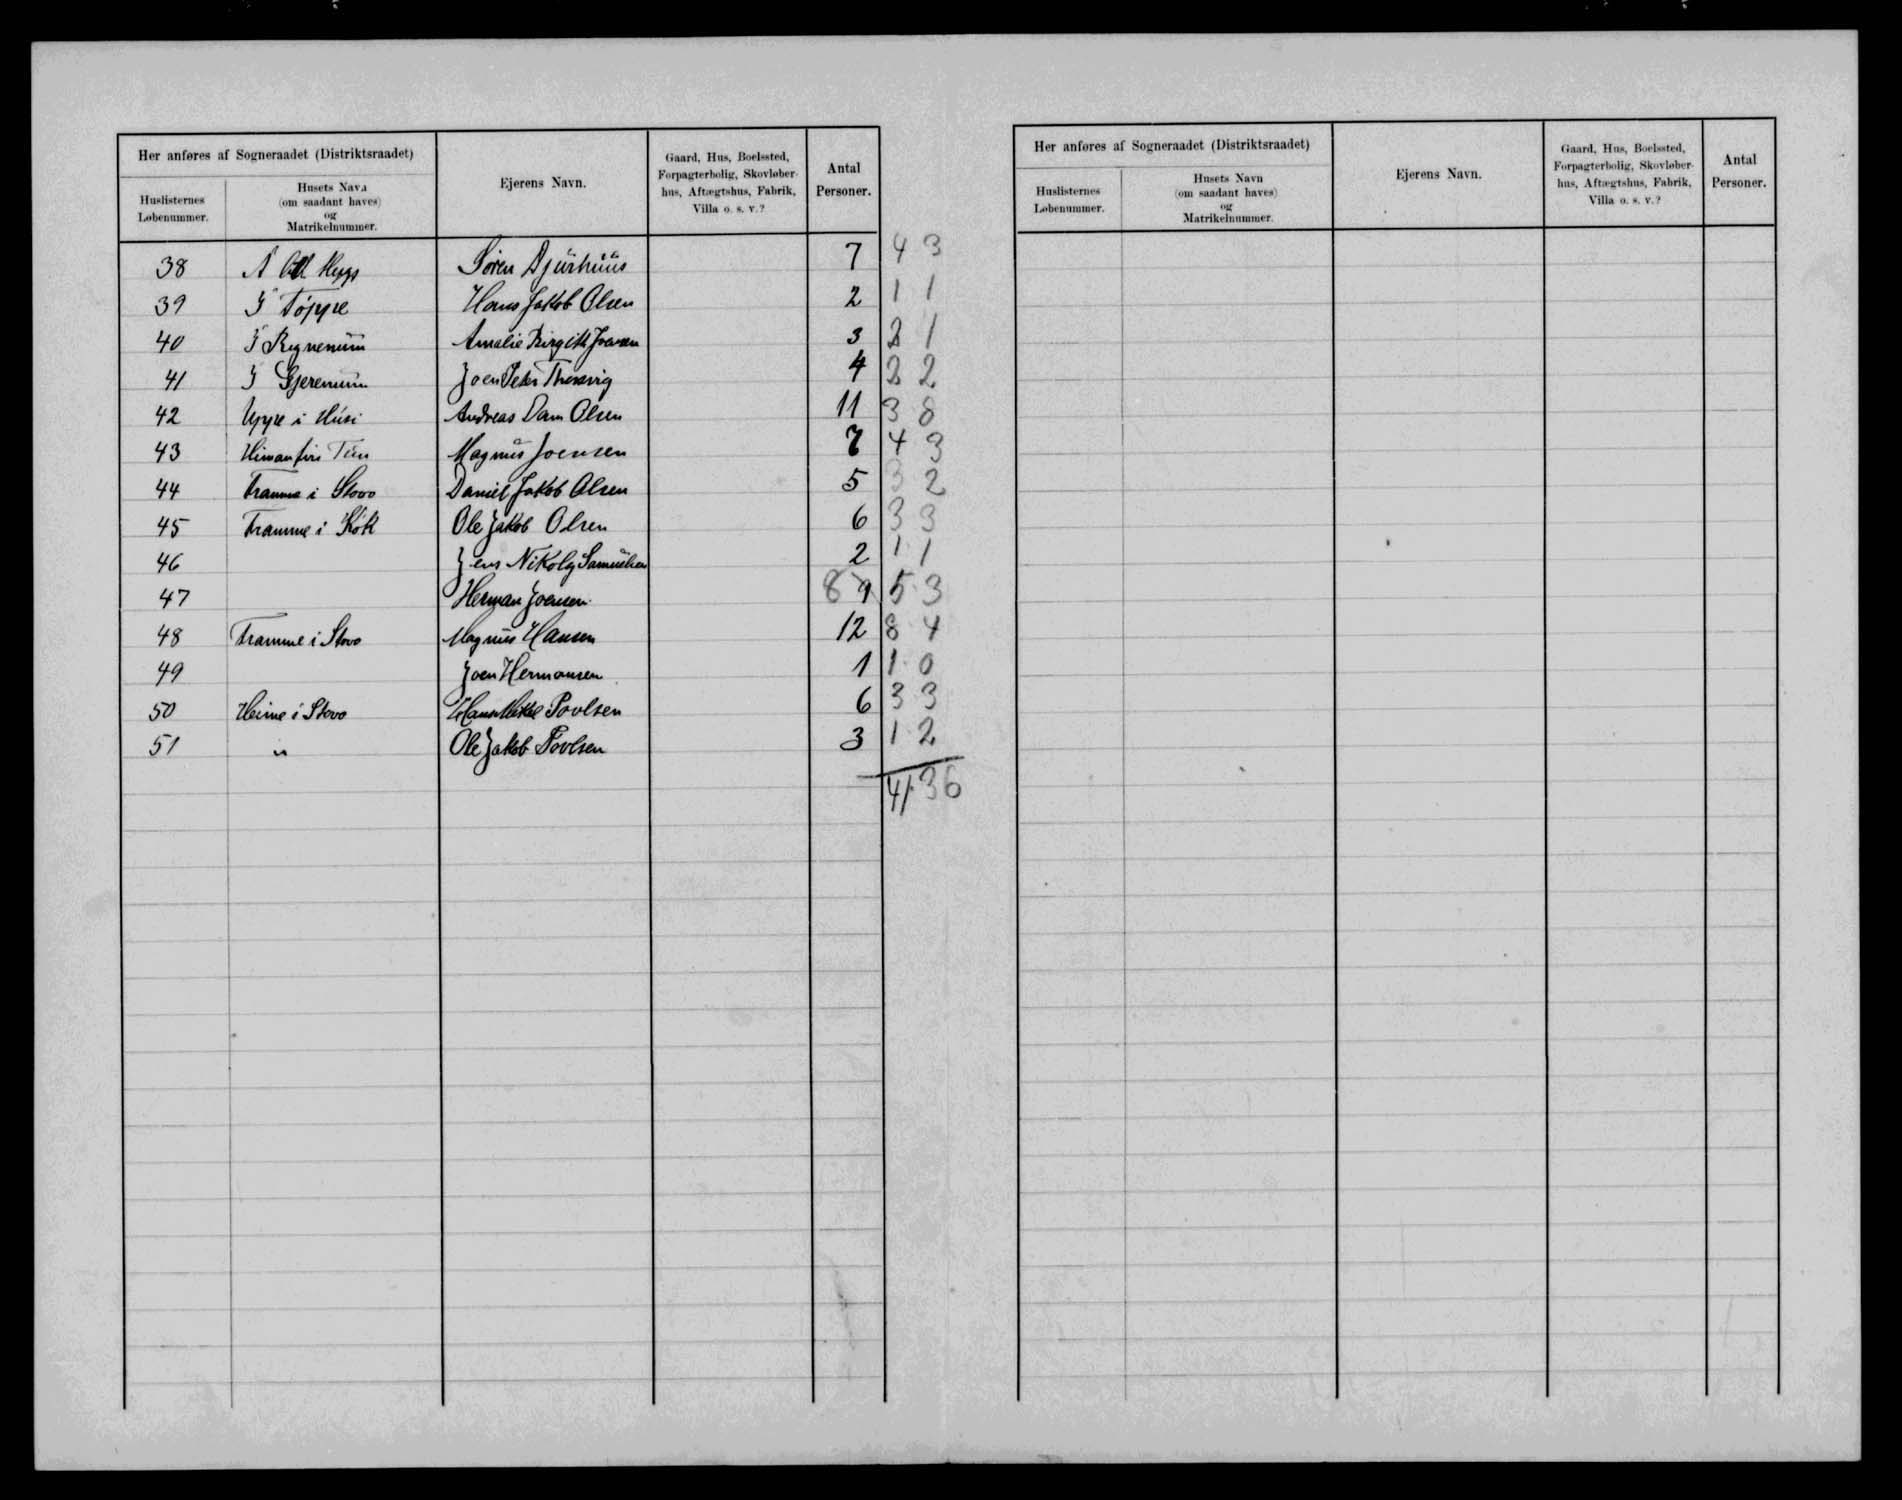 Her anføres af Sogneraadet (Distriktsraadet)
Huslisternes Løbenummer.
Husets Navn (om saadant haves) og Matrikelnummer.
Ejerens Navn.
Gaard, Hus, Boelssted, Forpagterbolig, Skovløberhus, Aftægtshus, Fabrik, Villa o. s. v.?
Antal Personer.
38 Á Søren Djurhuus 7 4 3
39 Í Toppe Hans Jakob Olsen 2 1 1
40 Í Regnenum Amalie Birgith Joensen 3 2 1
41 Í Gjerenum Joen Peter Thomsvig 4 2 2
42 Uppe i Húsi Andreas Dam Olsen 11 3 8
43 Himanfiri Tún Magnus Joensen 7 4 3
44 Framme i Stovo Daniel Jakob Olsen 5 3 2
45 Framme i Kók Ole Jakob Olsen 6 3 3
46 Jens Nikolaj Samuelsen 2 1 1
47 Herman Joensen 8 9 5 3
48 Framme i Stovo Magnus Hansen 12 8 4
49 Joen Hermansen 1 1 0
50 Heime i Stovo Hans Mikkel Poulsen 6 3 3
51 " Ole Jakob Poulsen 3 1 2
41 36
Her anføres af Sogneraadet (Distriktsraadet)
Huslisternes Løbenummer.
Husets Navn (om saadant haves) og Matrikelnummer.
Ejerens Navn.
Gaard, Hus, Boelssted, Forpagterbolig, Skovløberhus, Aftægtshus, Fabrik, Villa o. s. v.?
Antal Personer.